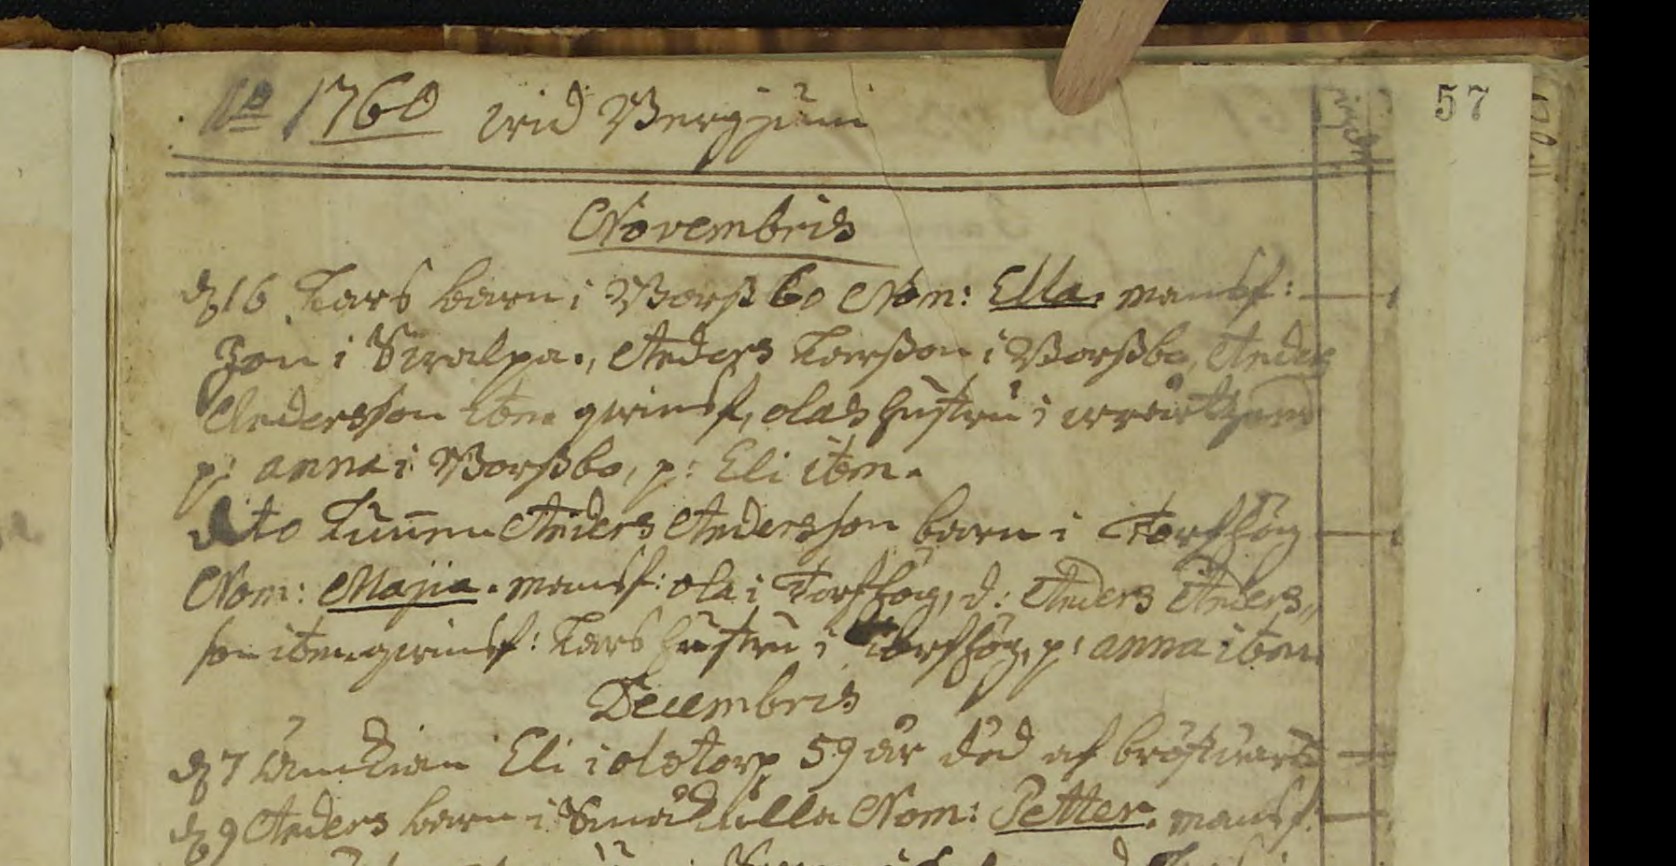 Ao 1760 wid Berghum
57
Novembris
d 16 Lars barn i Borßbo Nom: Ella. mansf:
Jon i Swalpa., Anders Larßon i Borßbo, Anders
Andersson item qwinsf, olas hustru i
p: anna i Borßbo, p: Eli item.
dto Anders Andersson barn i Torfhög
Nom: Majia. mansf: ola i Torfhög, d: Anders Anders,,
son item. qwinsf: Lars hustru i Torfhög, p: anna item
Decembris
d 7 Änckian Eli i olstorp 59 år död af bröstwärk
d 9 Anders barn i Småkulla Nom: Petter. mansf: